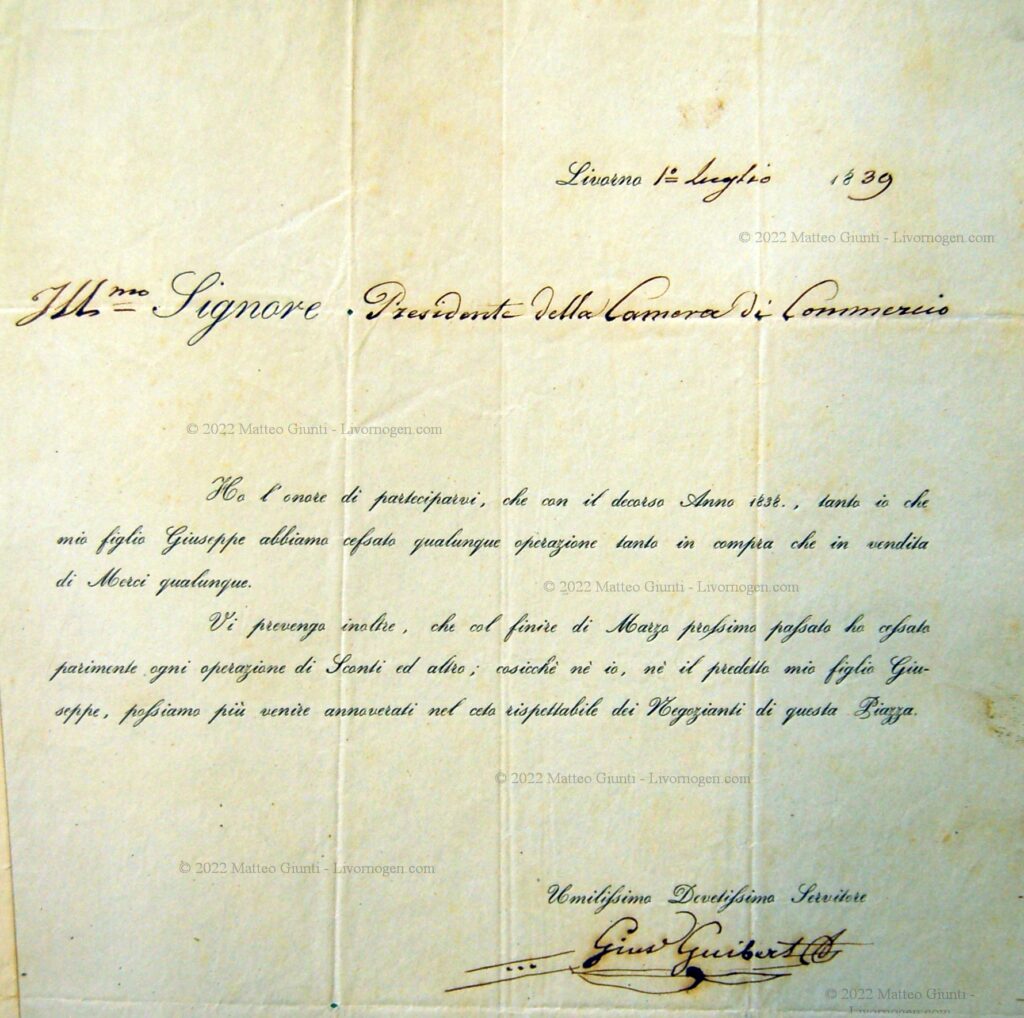 Livorno 1º luglio 1839
© 2022 Matteo Giunti - Livornogen.com
Ill.mo Signore. Presidente della Camera di Commercio
© 2022 Matteo Giunti - Livornogen.com
Ho l'onore di parteciparvi, che con il decorso Anno 1838., tanto io che
mio figlio Giuseppe abbiamo cessato qualunque operazione tanto in compra che in vendita
di Merci qualunque.
© 2022 Matteo Giunti - Livornogen.com
Vi prevengo inoltre, che col finire di Marzo prossimo passato ho cessato
parimente ogni operazione di Sconti ed altro; cosicchè nè io, nè il predetto mio figlio Giu-
seppe, possiamo più venire annoverati nel ceto rispettabile dei Negozianti di questa Piazza.
© 2022 Matteo Giunti - Livornogen.com
© 2022 Matteo Giunti - Livornogen.com
Umilissimo Devotissimo Servitore
Gius.e Guibert
© 2022 Matteo Giunti -
Livornogen.com